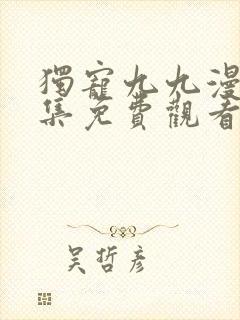 獨寵九九漫
集免費觀看
吴哲彦